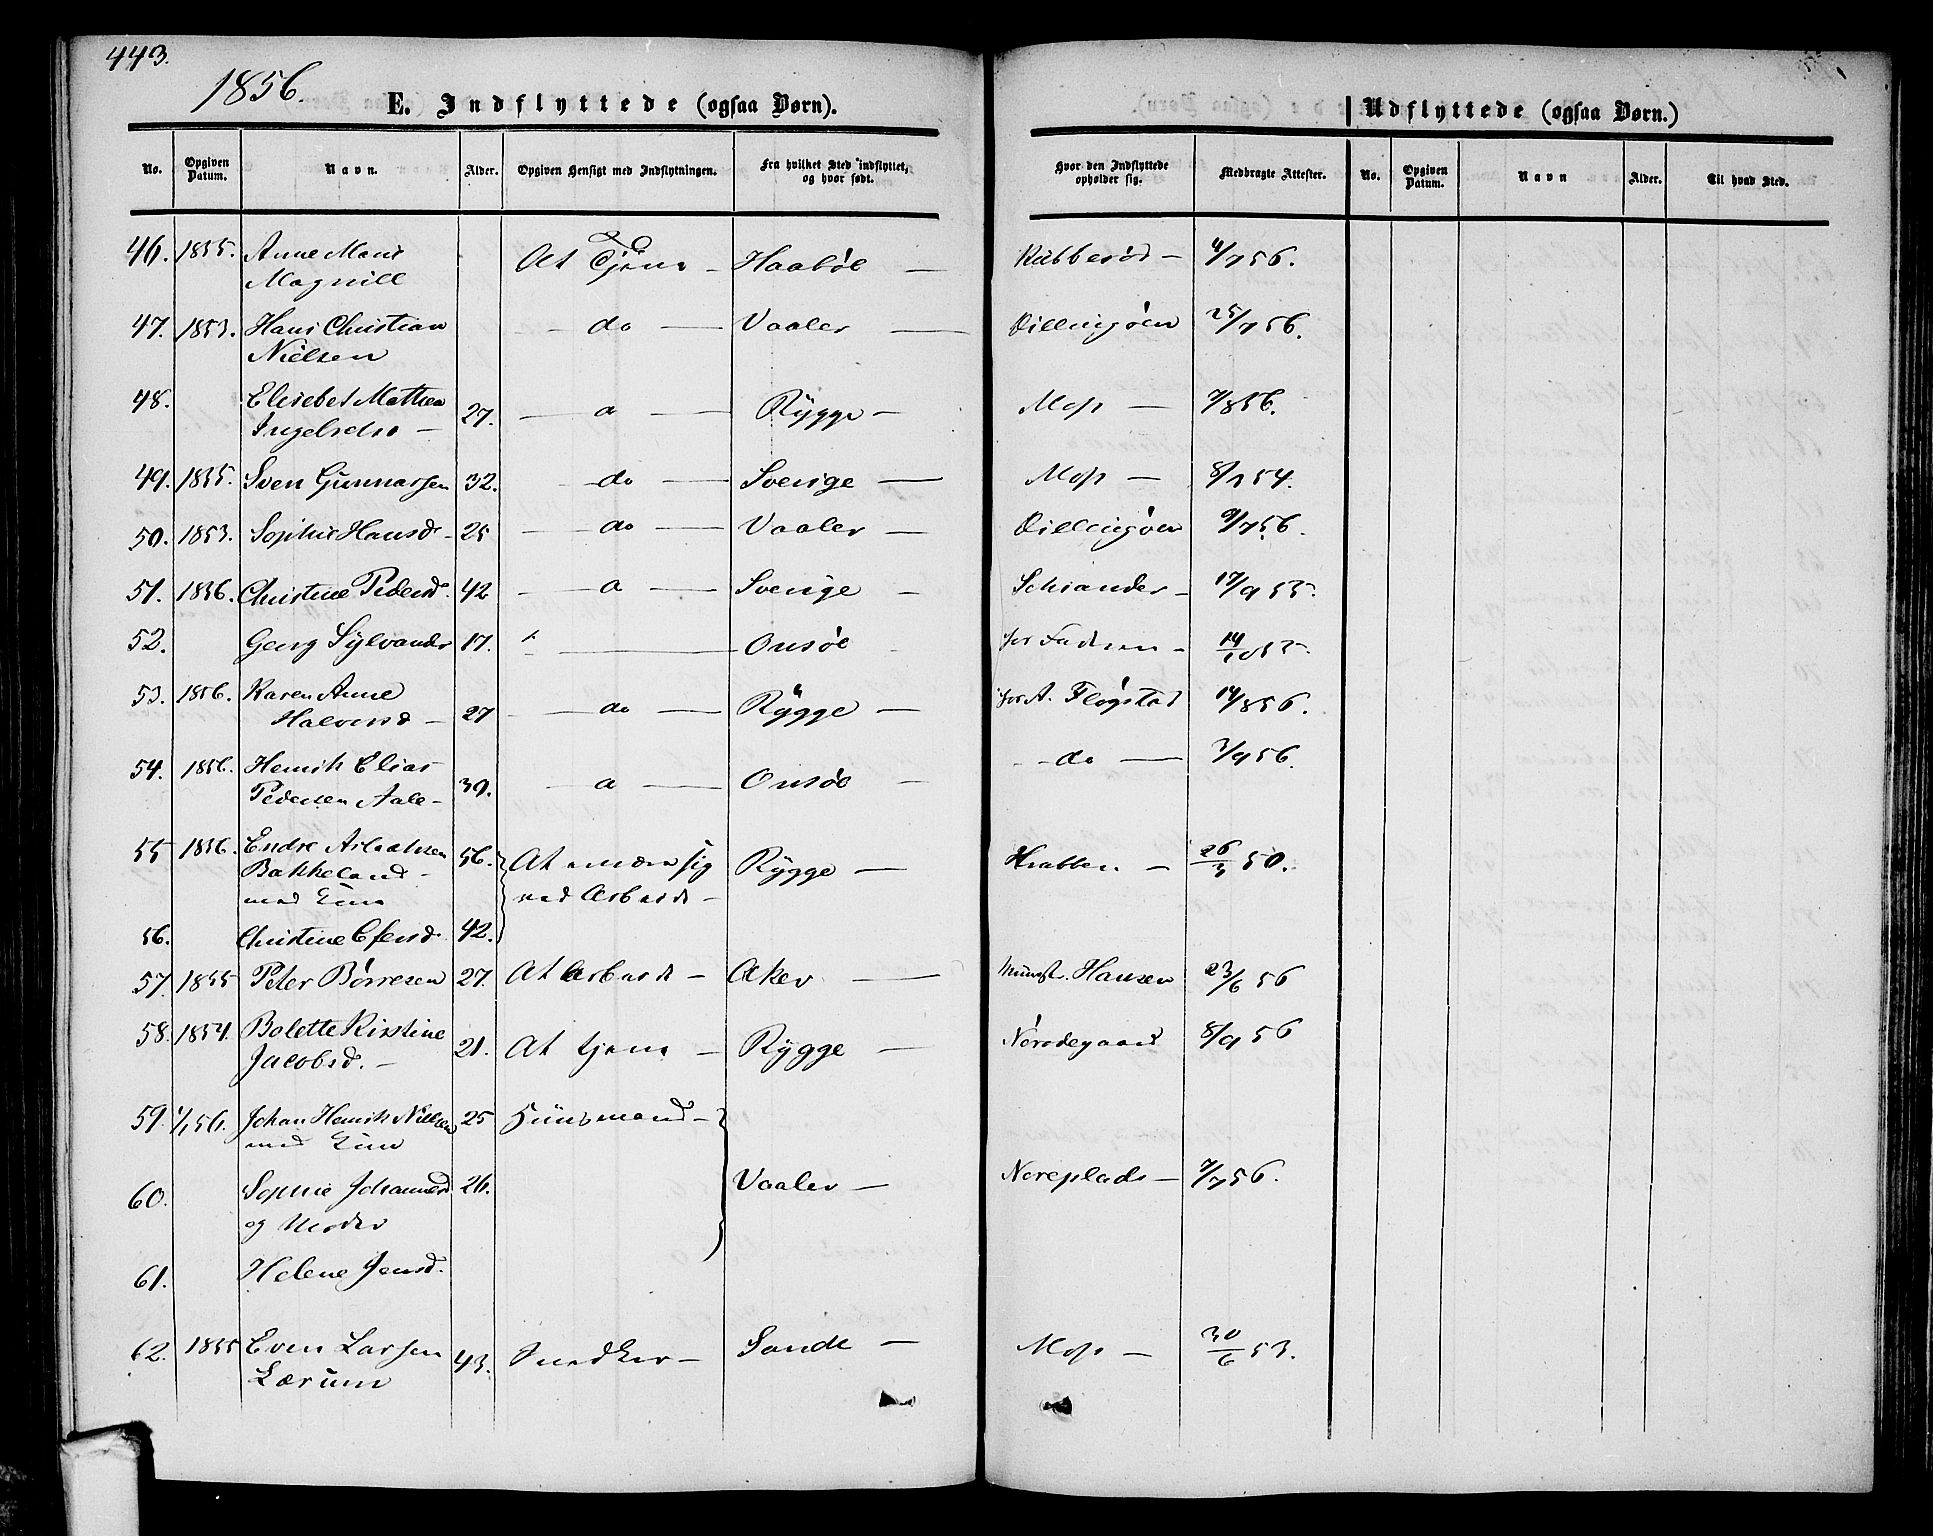 443.
1856.
E. Indflyttede (ogsaa Børn).
Udflyttede (ogsaa Børn.)
No. Opgiven Datum. Navn. Alder. Opgiven Hensigt med Indflytningen. Fra hvilket Sted indflyttet, og hvor født. Hvor den Indflyttede opholder sig. Medbragte Attester. No. Opgiven Datum. Navn Alder. Til hvad Sted.
46. 1855. Anne Marie At Tjene – Haabøl – 4/7 56.
Magnill
47. 1853. Hans Christian – do – Vaaler – Dillingøen 25/7 56.
Nielsen
48. Elisebet Mathea 27. Rygge – Moss – 7/8 56.
49. 1855. Sven Gunnarsen 32. – do – Sverige – Moss – 8/1 54.
50. 1853. Sophie Hansd – 25 – do – Vaaler – Dillingøen 9/7 56.
51. 1856. Christine Pedersd. 42 Sverige – 17/9 55.
52. Georg Sylvander 17. Onsøe 14/10 55.
53. 1856. Karen Anne
Halvorsd – 27 – do – Rygge – for A. Fløgstad 14/8 56.
54. 1856. Henrik Elias – do – 3/9 56.
Pedersen Aale – 39. Onsøe –
55 1856. Endre Aslaksen 56. At ernære sig Rygge – Krabben – 26/3 50.
Bakkeland – ved Arbeide –
med
56. Christine Efensd. 42.
57. 1855 Peter Børresen 27. At Arbeide – Aker – Hansen 23/6 56
58. 1854. Bolette Kirstine
Jacobsd. – 21. At tjene – Rygge – 8/9 56
59. 1/1 56. Johan Henrik Nielsen 25 Huusmand –
med
60. Sophie Johannesd 26. Vaaler – Noreplads – 7/7 56.
og Moder
61. Helene Jensd.
62. 1855 Even Larsen 43. Snedker – Sande – Moss – 30/6 53.
Lærum